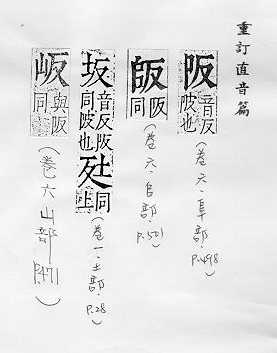 重訂直音篇
阪 音反陂也 (卷六.阜部.P.498)
阪同 (卷六.部.P.501)
坂 音反阪同陂也 同上 (卷一.土部.P.28)
岅 與阪同 (卷六山部 P.471)